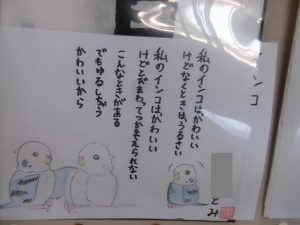 インコ
私のインコはかわいい
けどなくときは、うるさい
私のインコはかわいい
けどとびまわってつかまえられない
こんなときがある
でもゆるしちゃう
かわいいから
とみ